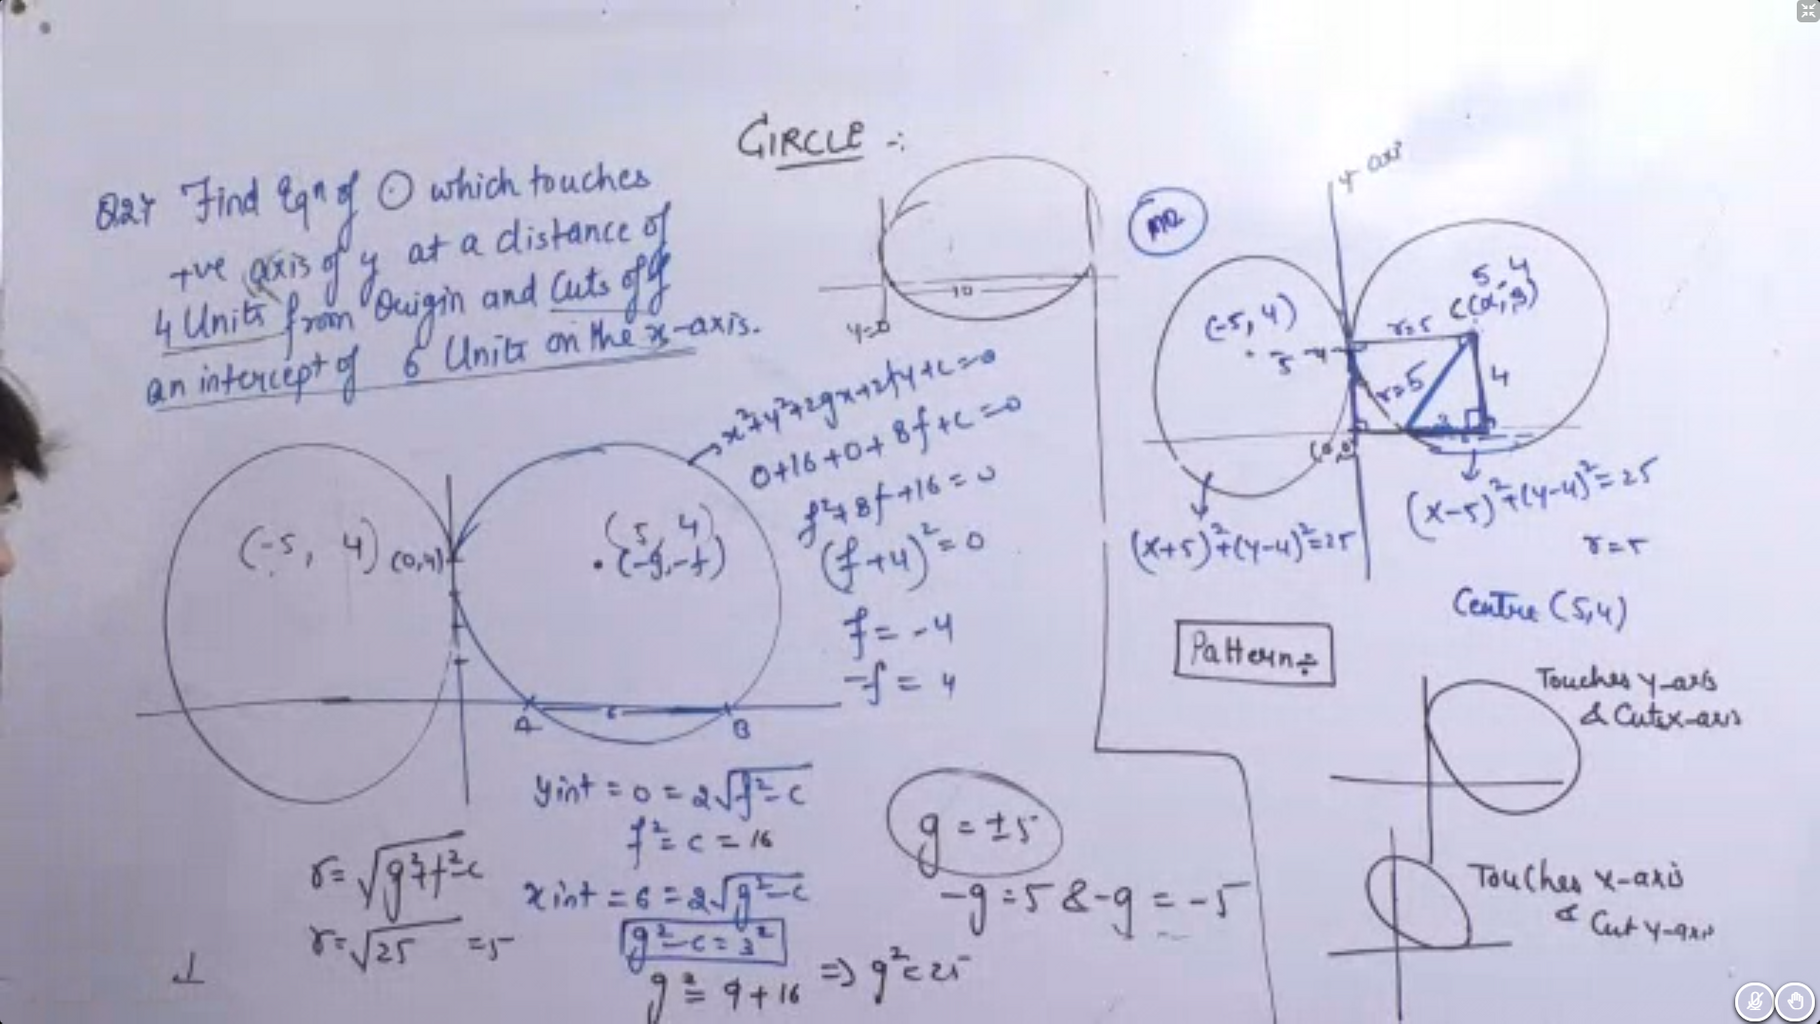 CIRCLE :-
Q24 Find Eqn of ⊙ which touches
+ve axis of y at a distance of
4 Units from Origin and Cuts off
an intercept of 6 Units on the x-axis.
10
y=0
x²+y²+2gx+2fy+c=0
0+16+0+8f+c=0
f²+8f+16=0
(f+4)²=0
f=-4
-f=4
(-5, 4)
(0,4)
(5, 4)
(-g,-f)
A
6
B
y int = 0 = 2√f²-c
f²=c=16
x int = 6 = 2√g²-c
g²-c=3²
g²=9+16 => g²=25
r=√g²+f²-c
r=√25 =5
g=±5
-g=5 & -g=-5
y-axis
(-5, 4)
5, 4
r=5
r=5
4
(x+5)²+(y-4)²=25
(x-5)²+(y-4)²=25
r=5
Centre (5,4)
Pattern÷
Touches y-axis
& Cuts x-axis
Touches x-axis
& Cut y-axis